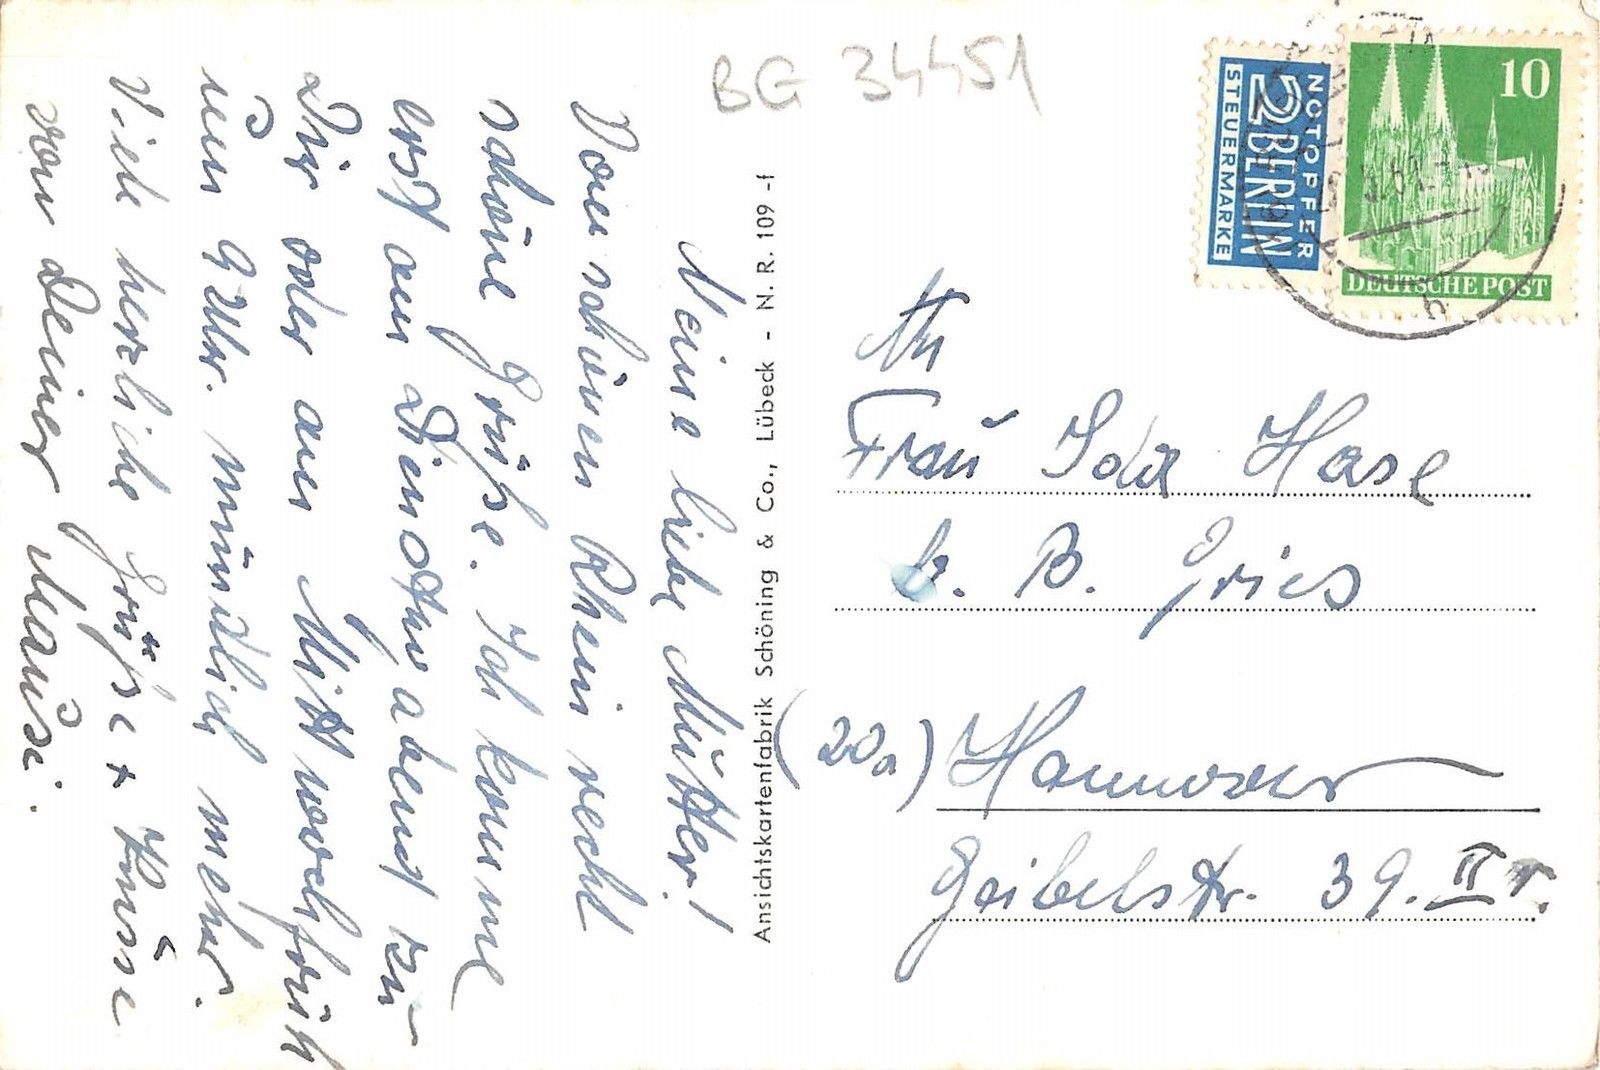 BG 34451
NOTOPFER
2 BERLIN
STEUERMARKE
10
DEUTSCHE POST
Meine liebe Mutter!
Vom schönen Rhein recht
schöne Grüße. Ich komme
erst am Dienstag abend zu
Dir oder am Mittwoch früh
um 9 Uhr. mündlich mehr.
Viele herzliche Grüße + Küsse
von Deiner Mausi.
Ansichtskartenfabrik Schöning & Co., Lübeck - N. R. 109 -f
An
Frau Ida Hase
b. B. Gries
(20a) Hannover
Geibelstr. 39. II